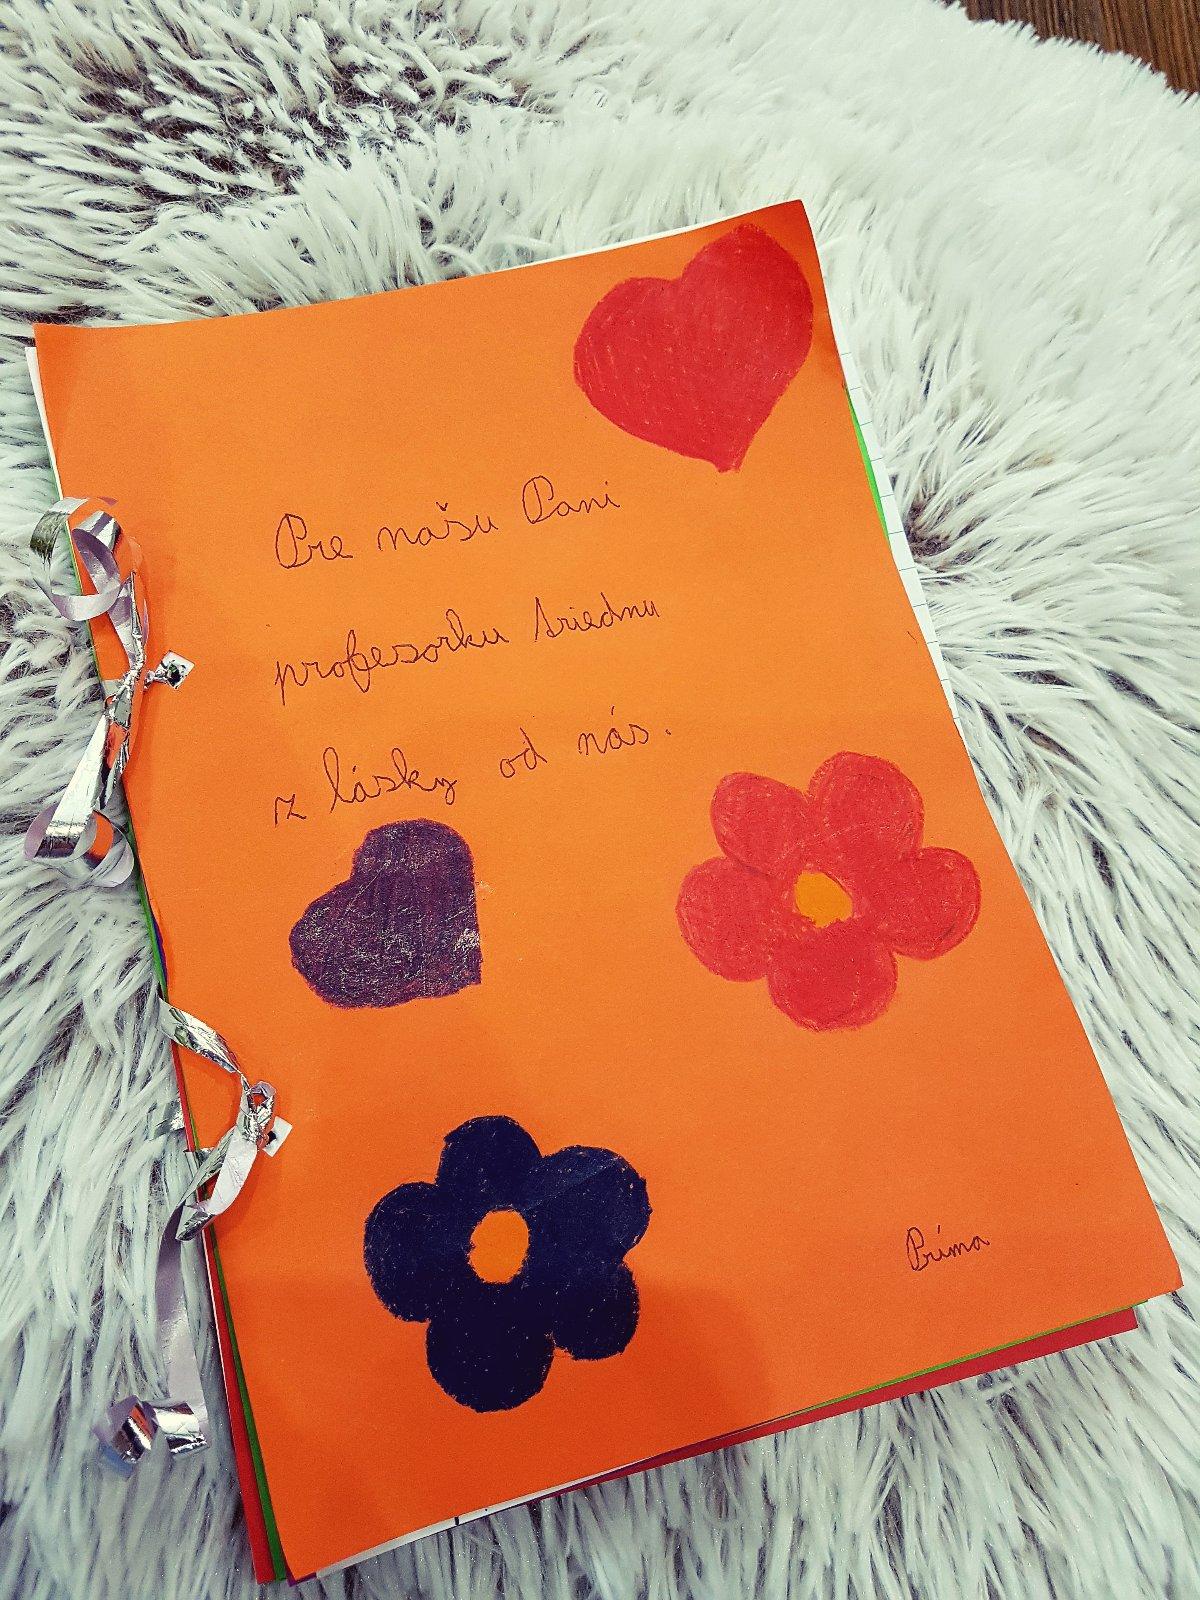 Pre našu Pani
profesorku triednu
z lásky od nás.
Príma